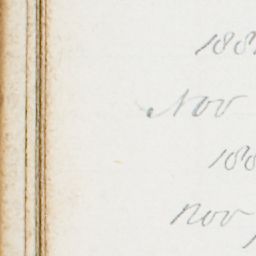 188
Nov
188
Nov